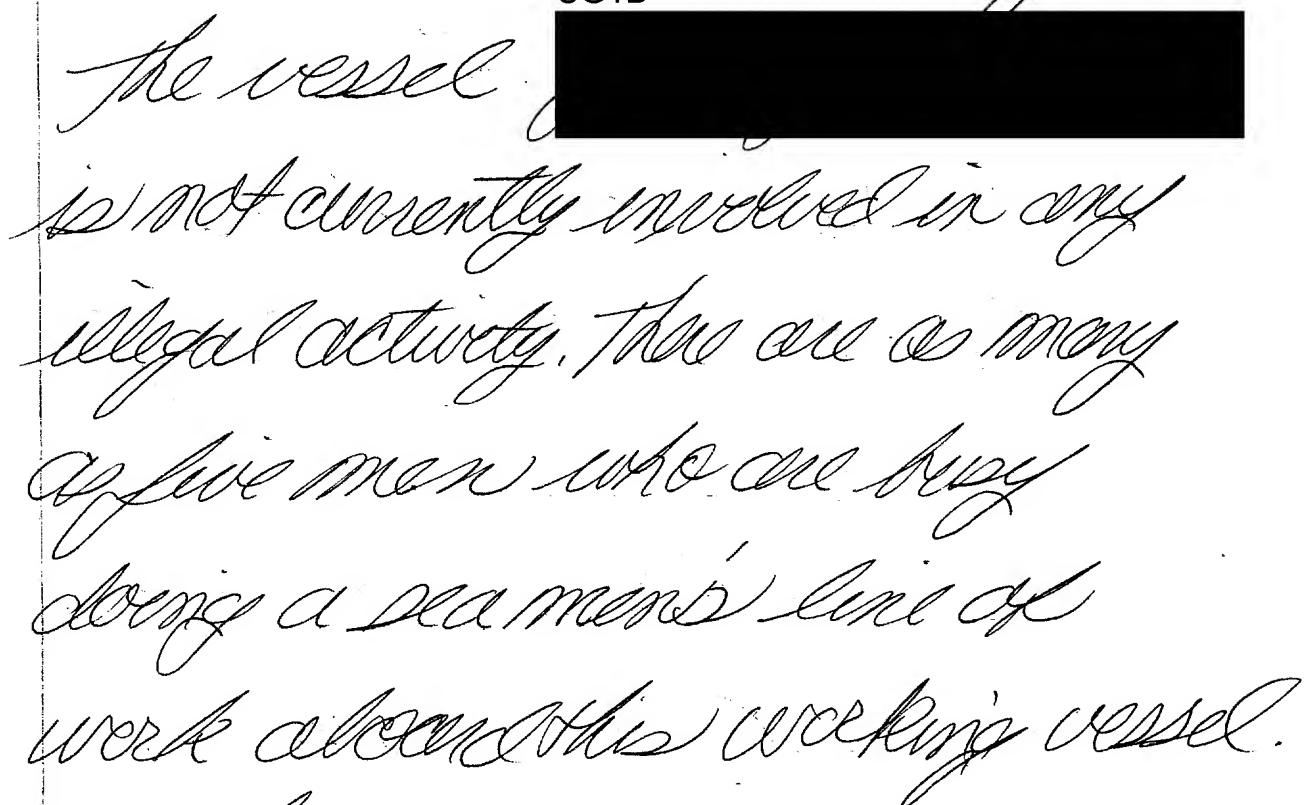 The vessel
is not currently involved in any
illegal activity. There are as many
as five men who are busy
doing a sea men's line of
work aboard this working vessel.